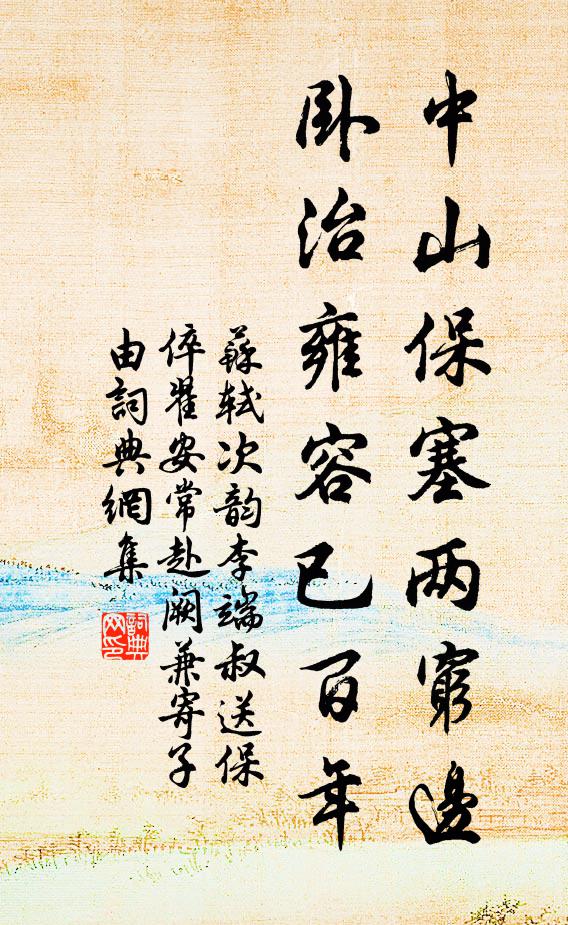 中山保塞两窮邊
卧治雍容已百年
蘇軾次韵李端叔送保
倅翟安常赴闕兼寄子
由詞典網集
詞典网印